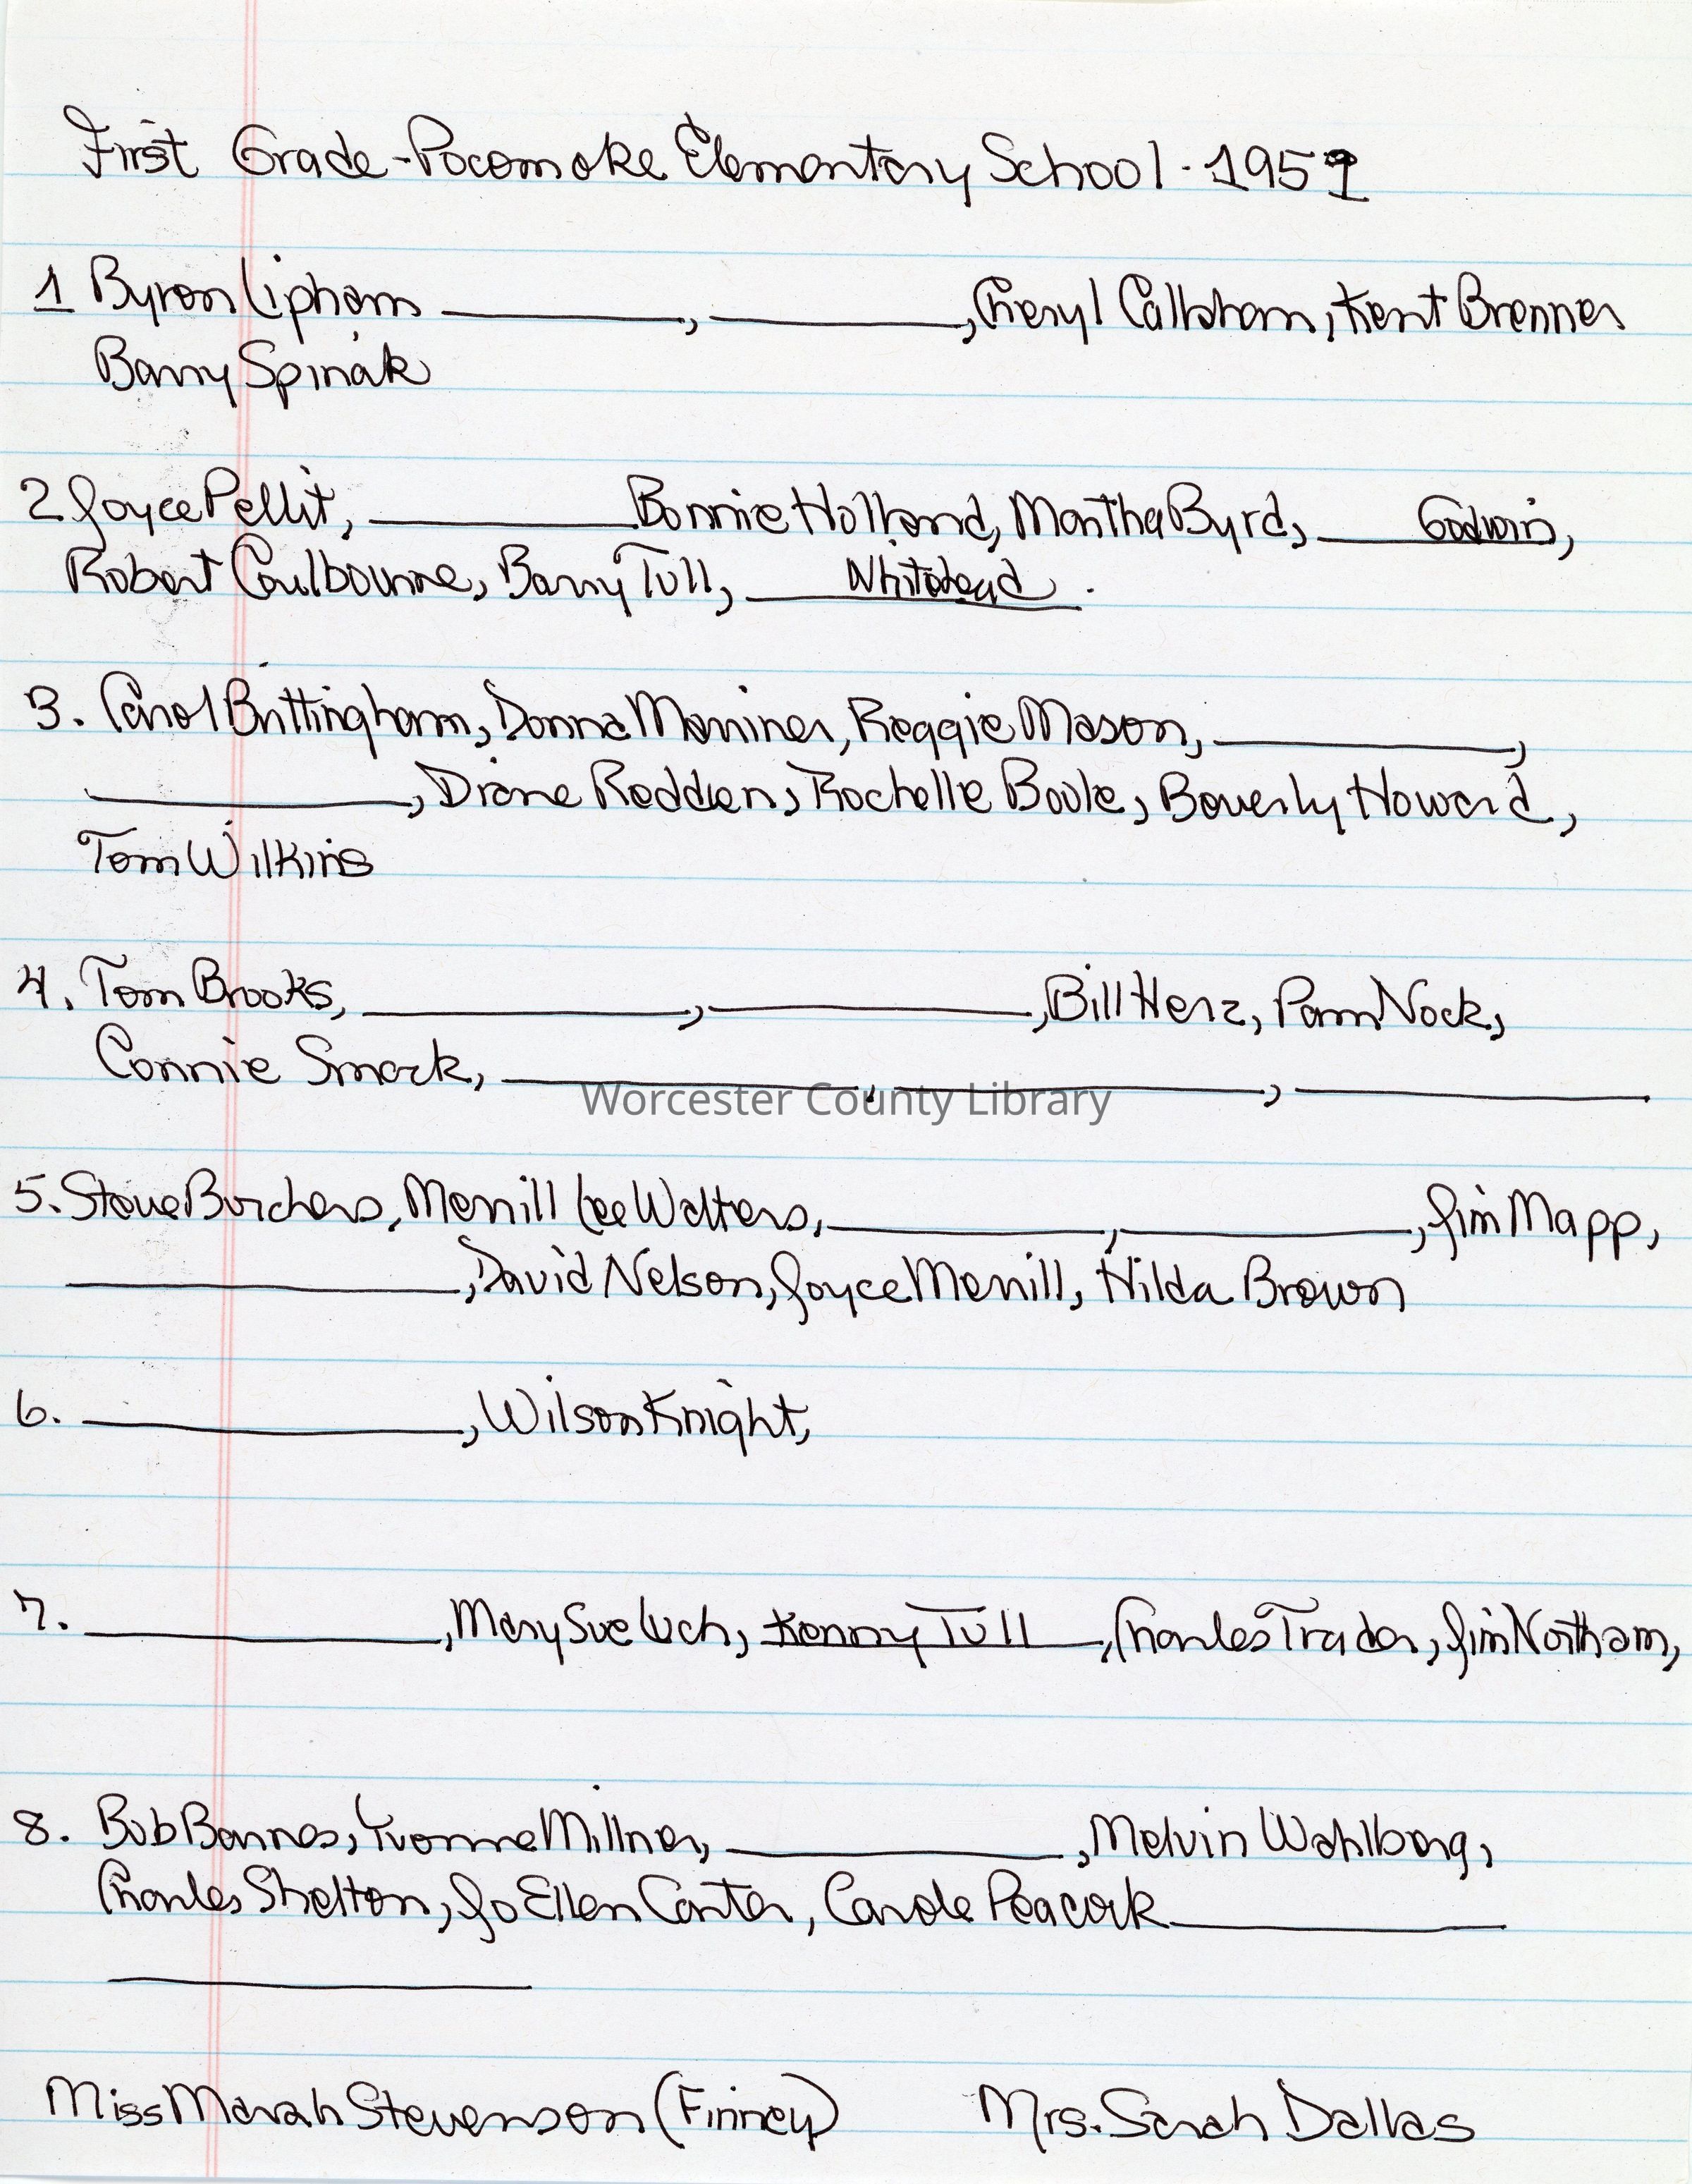 First Grade - Pocomoke Elementary School - 1951
1 Byron Lipham ________, ________, Cheryl Callaham, Kent Brenner
Barry Spinak
2 Joyce Pellit, ________ Bonnie Holland, Martha Byrd, ____ Godwin,
Robert Coulbourne, Barry Tull, ____ Whitehead.
3. Carol Brittingham, Donna Marriner, Reggie Mason, ________,
________, Diane Redden, Rochelle Bovle, Beverly Howard,
Tom Wilkins
4. Tom Brooks, ________, ________, Bill Herz, Pam Nock,
Connie Smack, ________, ________, ________
Worcester County Library
5. Steve Burchers, Merrill Lee Walters, ________, ________, Jim Mapp,
________, David Nelson, Joyce Merrill, Hilda Brown
6. ________, Wilson Knight,
7. ________, Mary Sue Luch, Kenny Tull, Charles Trader, Jim Northam,
8. Bob Barnes, Yvonne Millner, ________, Melvin Wahlberg,
Charles Shelton, Jo Ellen Carter, Carole Peacock ________
________
Miss Marah Stevenson (Finney) Mrs. Sarah Dallas